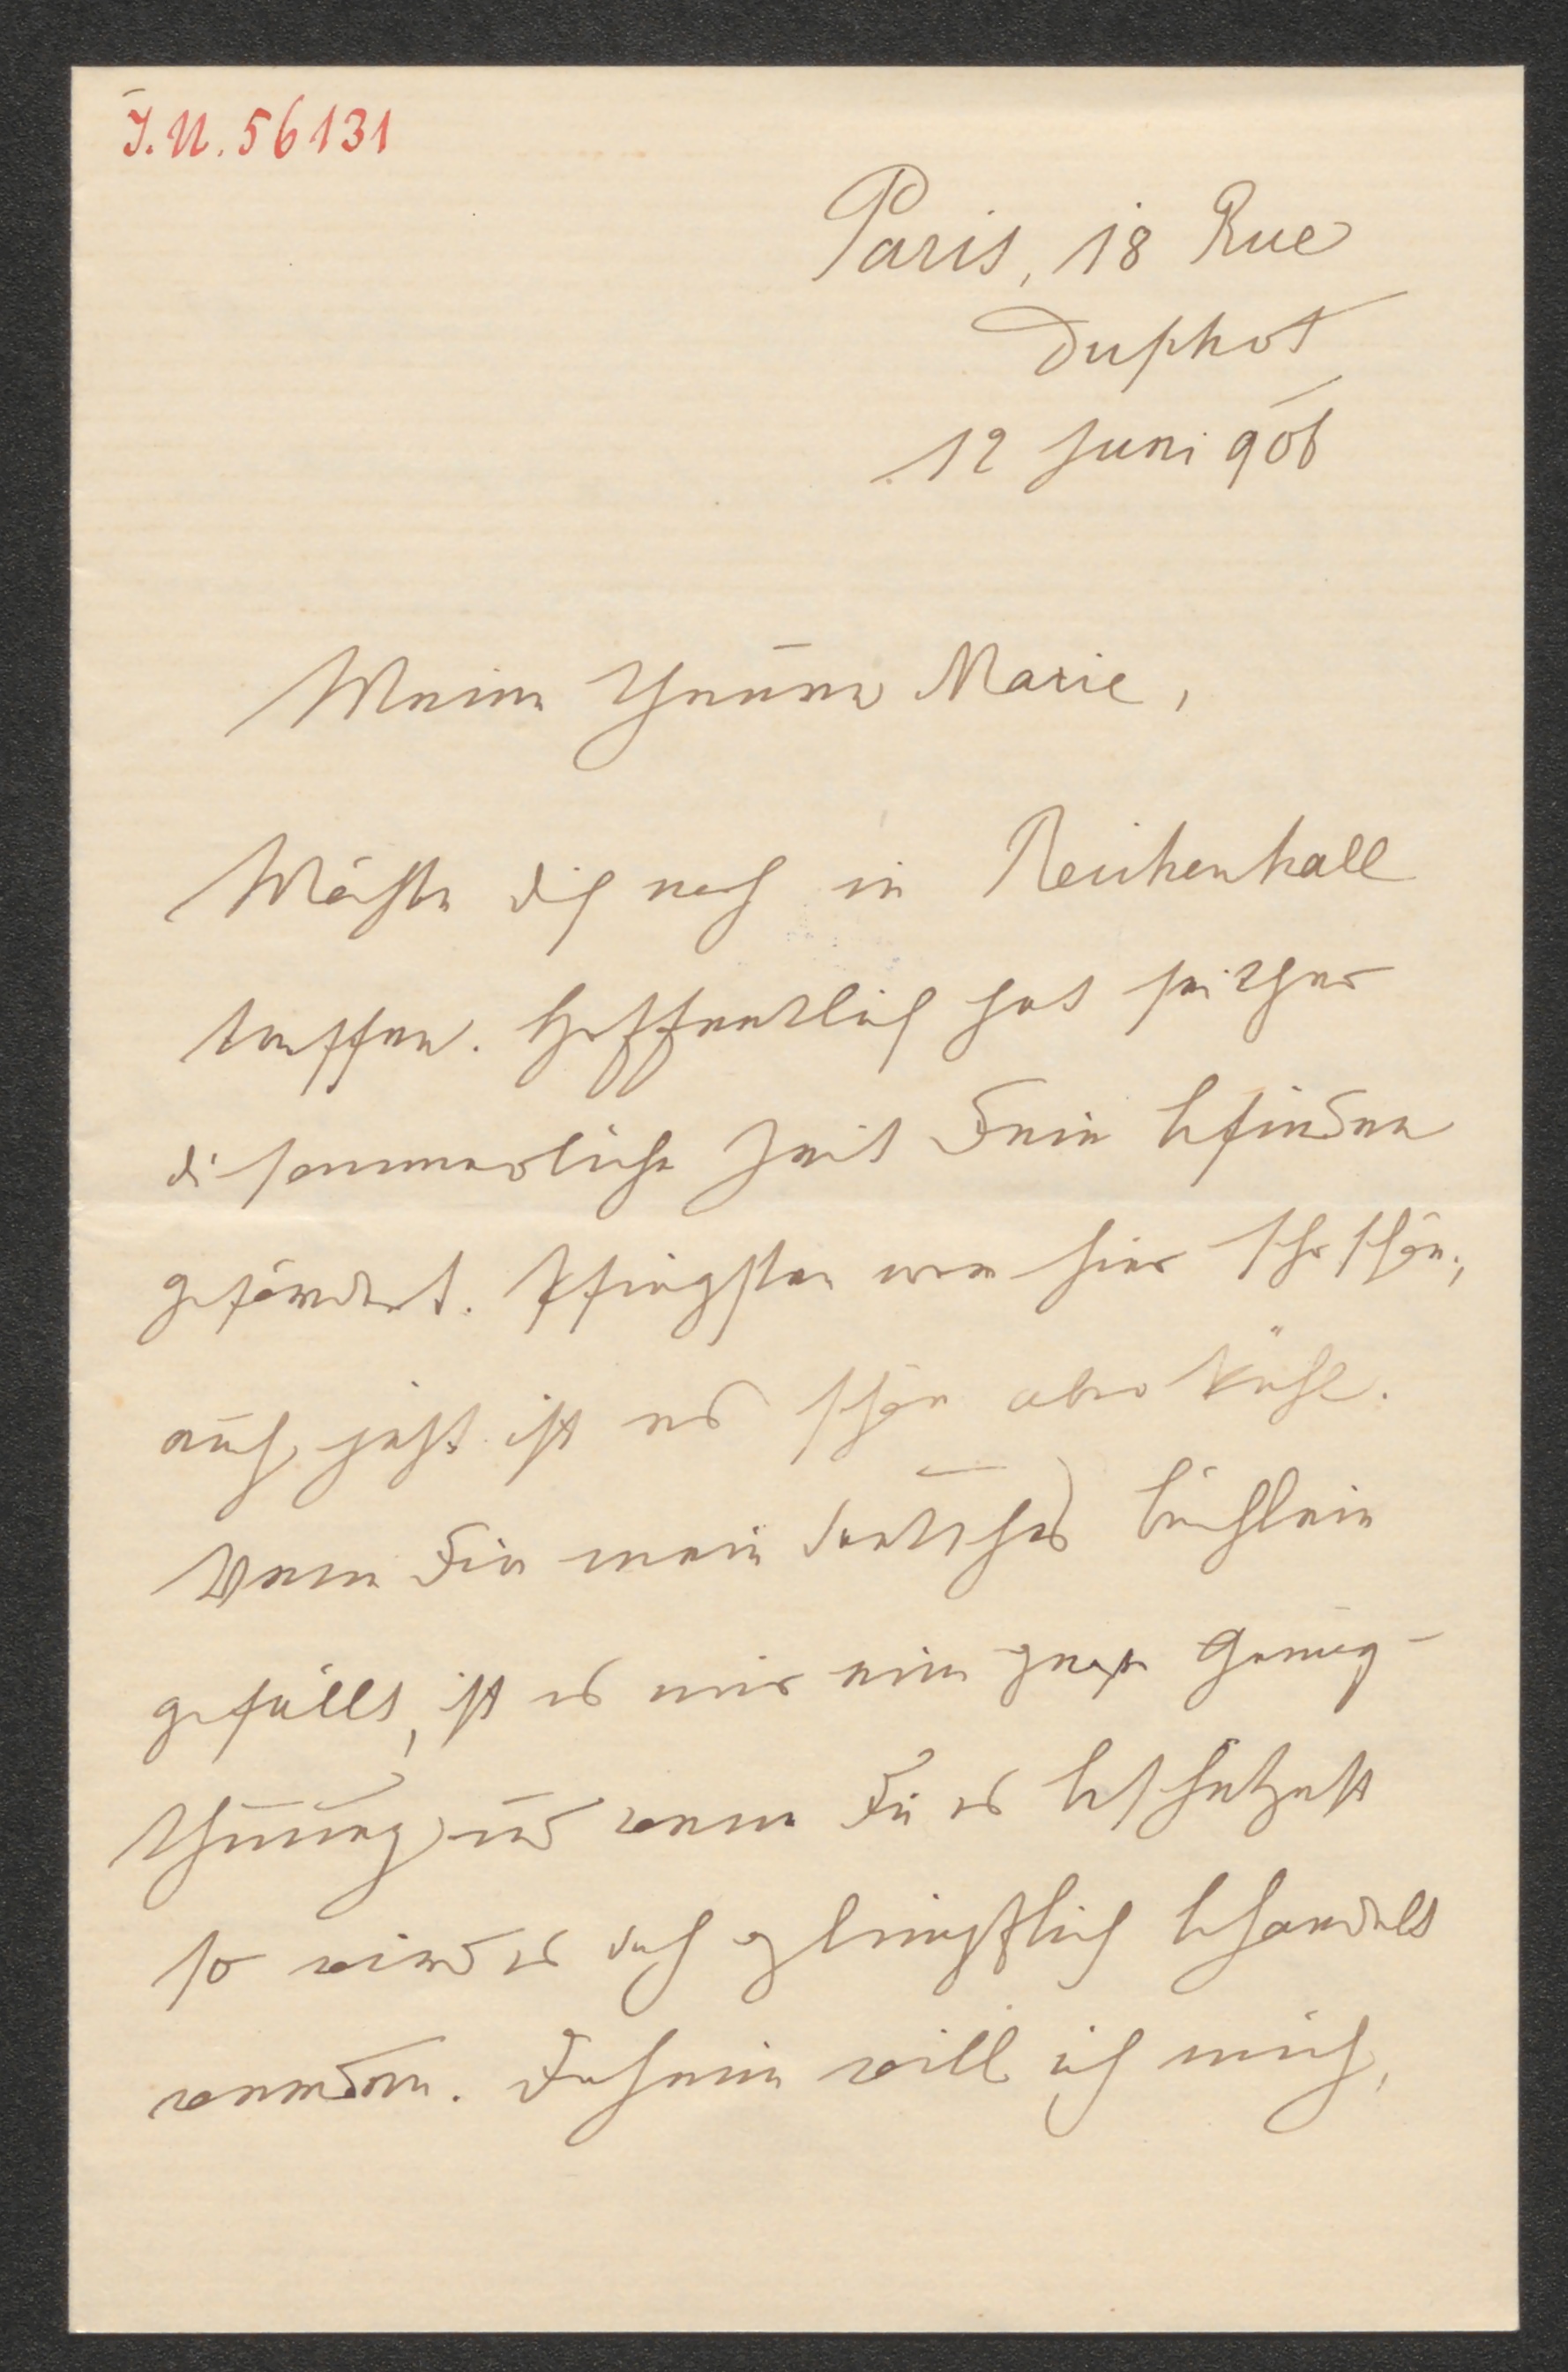 I.N. 56131
Paris, 18 Rue
Duphot
12 Juni 906
Meine theuere Marie,
Möchte dich noch in Reichenhall
treffen. Hoffentlich hat seither
die sommerliche Zeit Dein befinden
gefördert. Pfingsten war hier sehr schön;
auch jetzt ist es schön aber kühl.
Wenn Dir mein deutsches büchlein
gefällt, ist es mir eine große Genug-
thuung und wenn Du es beschützest
so wird es doch glimpflich behandelt
werden. Daheim will ich mich,